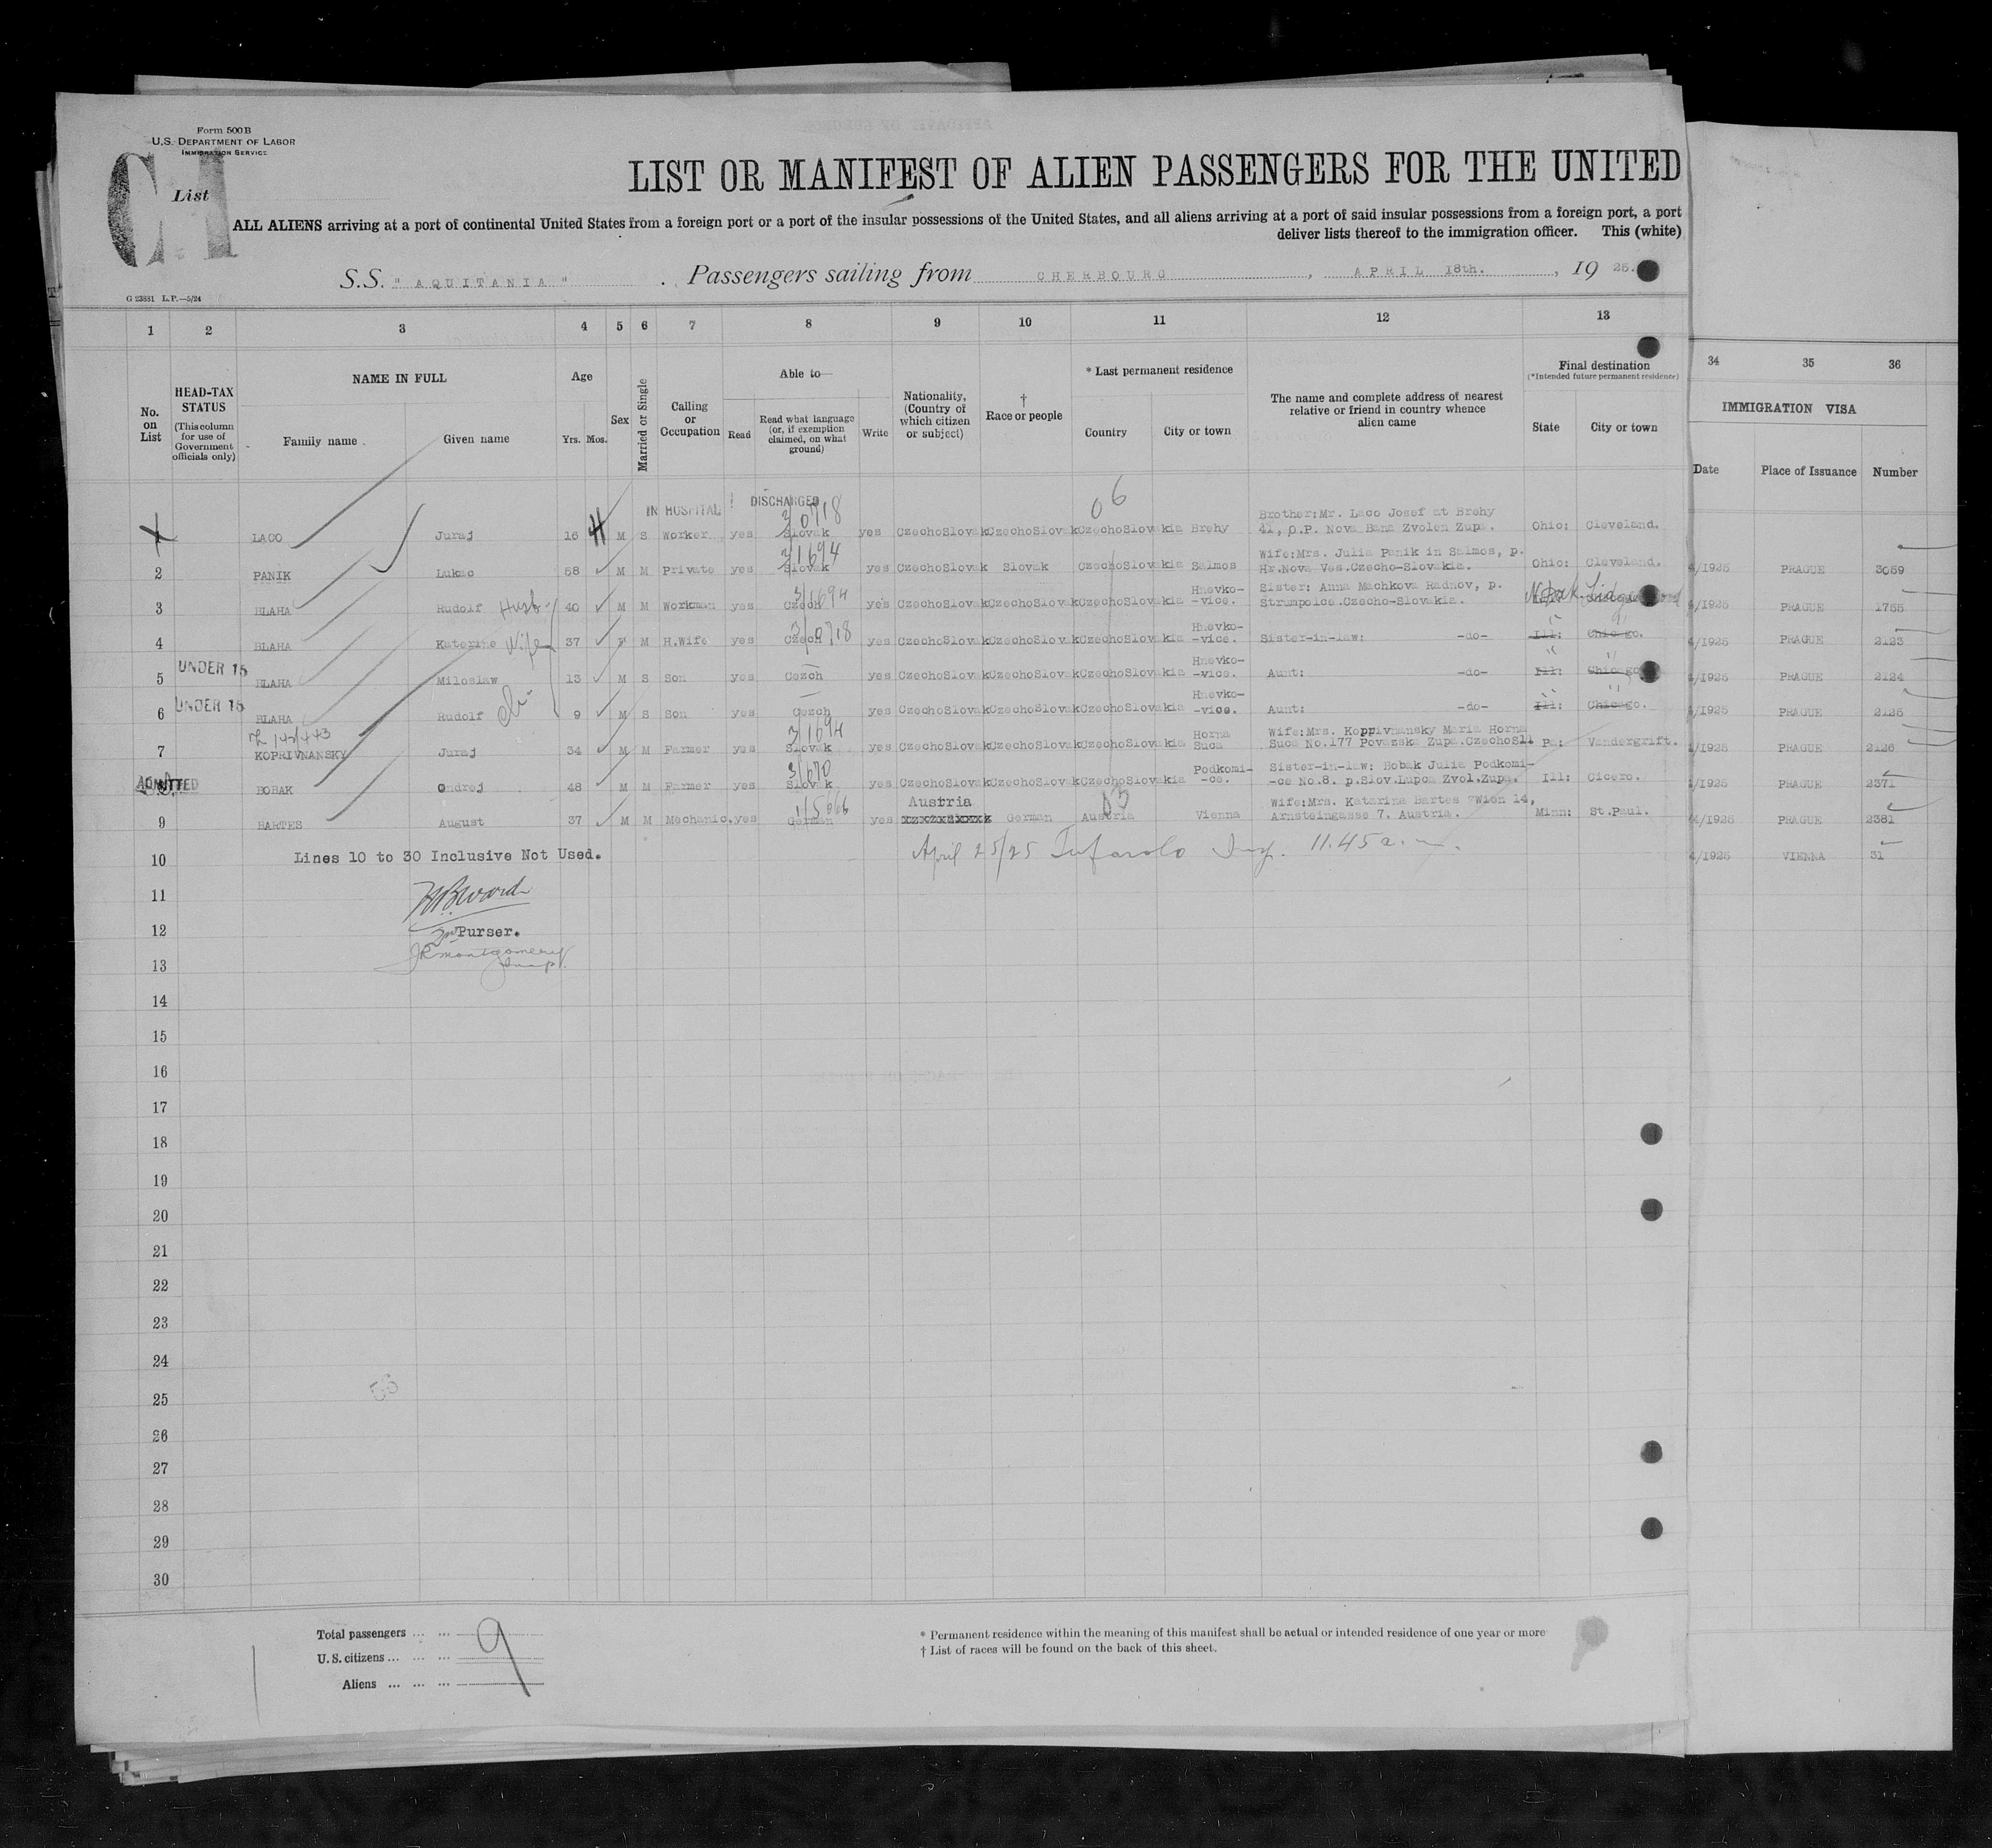 Form 500B
U.S. DEPARTMENT OF LABOR
IMMIGRATION SERVICE
List
LIST OR MANIFEST OF ALIEN PASSENGERS FOR THE UNITED
ALL ALIENS arriving at a port of continental United States from a foreign port or a port of the insular possessions of the United States, and all aliens arriving at a port of said insular possessions from a foreign port, a port
deliver lists thereof to the immigration officer. This (white)
S.S. " AQUITANIA " . Passengers sailing from CHERBOURG , APRIL 18th. , 19 25.
G 23881 L.P.—5/24
1 2 3 4 5 6 7 8 9 10 11 12 13 34 35 36
No. on List
HEAD-TAX STATUS (This column for use of Government officials only)
NAME IN FULL
Family name Given name
Age
Yrs. Mos.
Sex
Married or Single
Calling or Occupation
Able to—
Read Read what language (or, if exemption claimed, on what ground) Write
Nationality, (Country of which citizen or subject)
† Race or people
* Last permanent residence
Country City or town
The name and complete address of nearest relative or friend in country whence alien came
Final destination
(*Intended future permanent residence)
State City or town
IMMIGRATION VISA
Date Place of Issuance Number
IN HOSPITAL DISCHARGED
3/0718 06
1 LACO Juraj 16 H M S Worker yes Slovak yes CzechoSlovak CzechoSlovak CzechoSlovakia Brehy Brother:Mr. Laco Josef at Brehy 41, p.P. Nova Bana Zvolen Zupa. Ohio: Cleveland.
3/1694
2 PANIK Lukac 58 M M Private yes Slovak yes CzechoSlovak Slovak CzechoSlovakia Salmos Wife:Mrs. Julia Panik in Salmos, p. Hr.Nova Ves.Czecho-Slovakia. Ohio: Cleveland. 4/1925 PRAGUE 3059
3/1694
3 BLAHA Rudolf Husb 40 M M Workman yes Czech yes CzechoSlovak CzechoSlovak CzechoSlovakia Hnevko-vice. Sister: Anna Machkova Radnov, p. Strumpolce.Czecho-Slovakia. 4/1925 PRAGUE 1755
3/0718
4 BLAHA Katerine Wife 37 F M H.Wife yes Czech yes CzechoSlovak CzechoSlovak CzechoSlovakia Hnevko-vice. Sister-in-law: -do- Ill: Chicago. 4/1925 PRAGUE 2123
5 UNDER 16 BLAHA Miloslaw 13 M S Son yes Czech yes CzechoSlovak CzechoSlovak CzechoSlovakia Hnevko-vice. Aunt: -do- Ill: Chicago. 4/1925 PRAGUE 2124
6 UNDER 16 BLAHA Rudolf 9 M S Son yes Czech yes CzechoSlovak CzechoSlovak CzechoSlovakia Hnevko-vice. Aunt: -do- Ill: Chicago. 4/1925 PRAGUE 2125
3/1694
7 KOPRIVNANSKY Juraj 34 M M Farmer yes Slovak yes CzechoSlovak CzechoSlovak CzechoSlovakia Horna Suca Wife:Mrs. Koppivnansky Maria Horna Suca No.177 Povazska Zupa.CzechoSll Pa: Vandergrift. 4/1925 PRAGUE 2126
3/670
ADMITTED BOBAK Ondrej 48 M M Farmer yes Slovak yes CzechoSlovak CzechoSlovak CzechoSlovakia Podkomi-ce. Sister-in-law: Bobak Julia Podkomi-ce No.8. p.Slov.Lupca Zvol.Zupa. Ill: Cicero. 4/1925 PRAGUE 2371
9 BARTES August 37 M M Mechanic. yes German yes Austria German Austria Vienna Wife:Mrs. Katarina Bartes Wien 14, Arnsteingasse 7. Austria. Minn: St.Paul. 4/1925 PRAGUE 2381
10 Lines 10 to 30 Inclusive Not Used. April 25/25 Insp. 11.45 a.m. 4/1925 VIENNA 31
11
12 Purser.
JR Montgomery
13 Insp.
14
15
16
17
18
19
20
21
22
23
24
25
26
27
28
29
30
Total passengers ... ... 9
U.S. citizens ... ... ...
Aliens ... ... ...
* Permanent residence within the meaning of this manifest shall be actual or intended residence of one year or more
† List of races will be found on the back of this sheet.